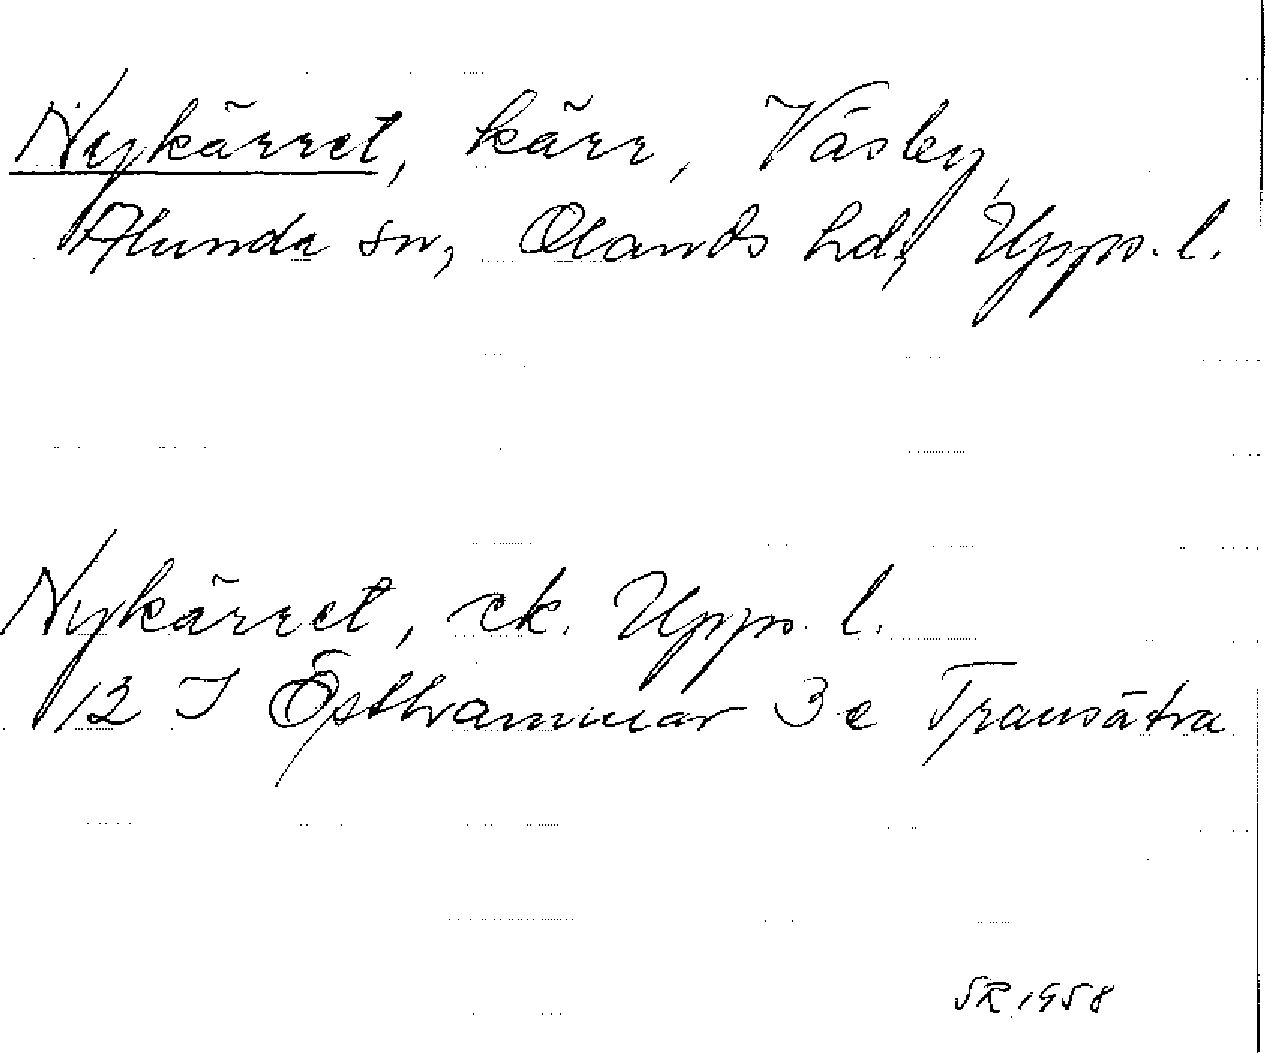 Nykärret, kärr, Väsby,
Alunda sn, Olands hd, Upps. l.
Nykärret, ek. Upps. l.
12 I Östhammar 3 e Transätra
SR 1958